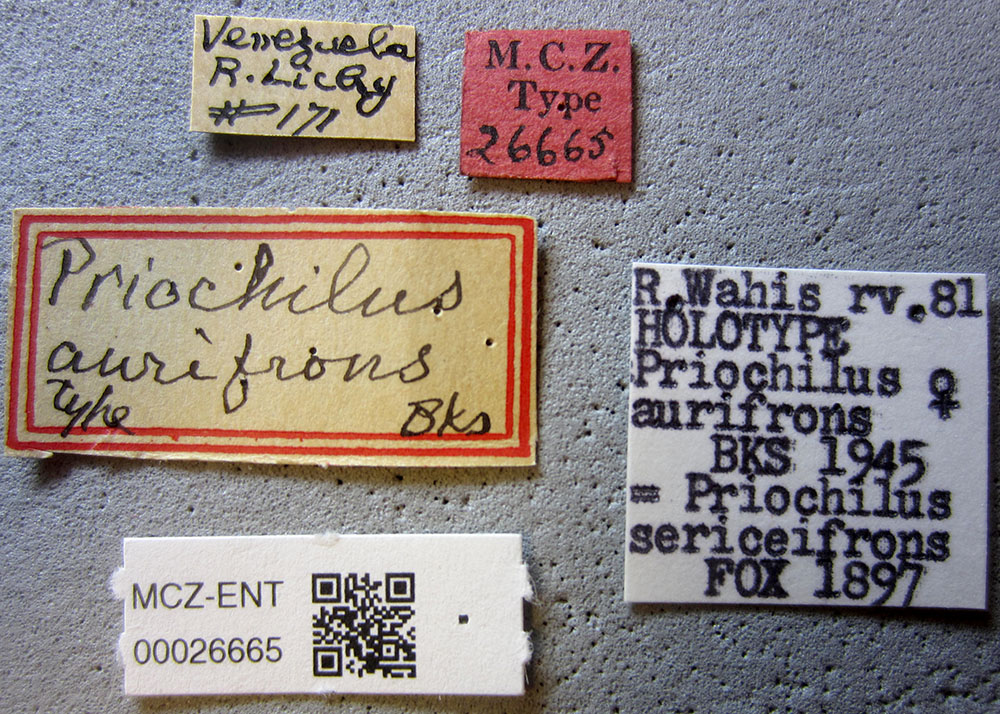 Venezuela
R. Lichy
#171
M. C. Z.
Type
26665
Priochilus
aurifrons
Type Bks
R.Wahis rv.81
HOLOTYPE
Priochilus ♀
aurifrons
BKS 1945
= Priochilus
sericeifrons
FOX 1897
MCZ-ENT
00026665